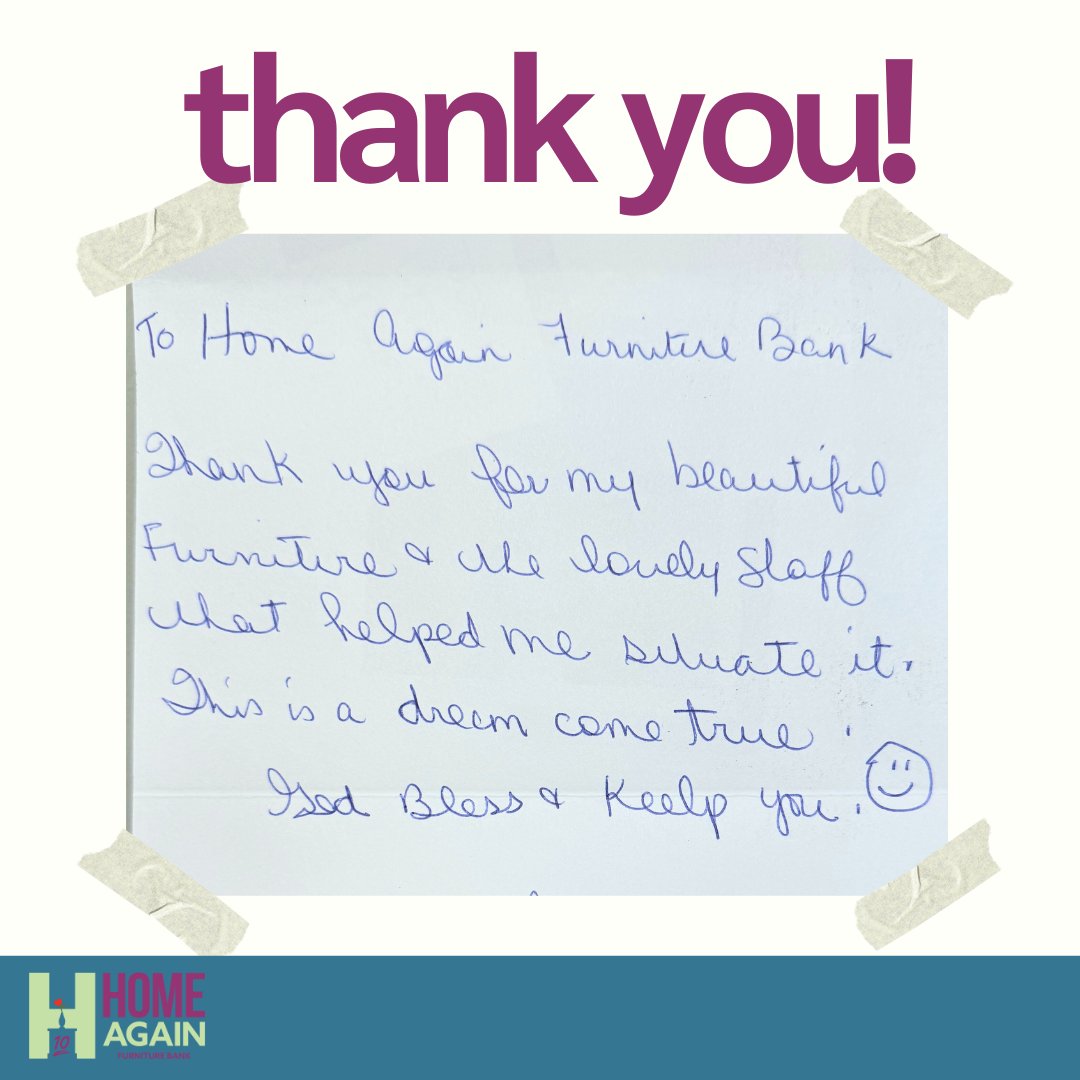 thank you!
To Home Again Furniture Bank
Thank you for my beautiful
Furniture & the lovely Staff
that helped me situate it.
This is a dream come true.
God Bless & Keep you.
10
HOME
AGAIN
FURNITURE BANK